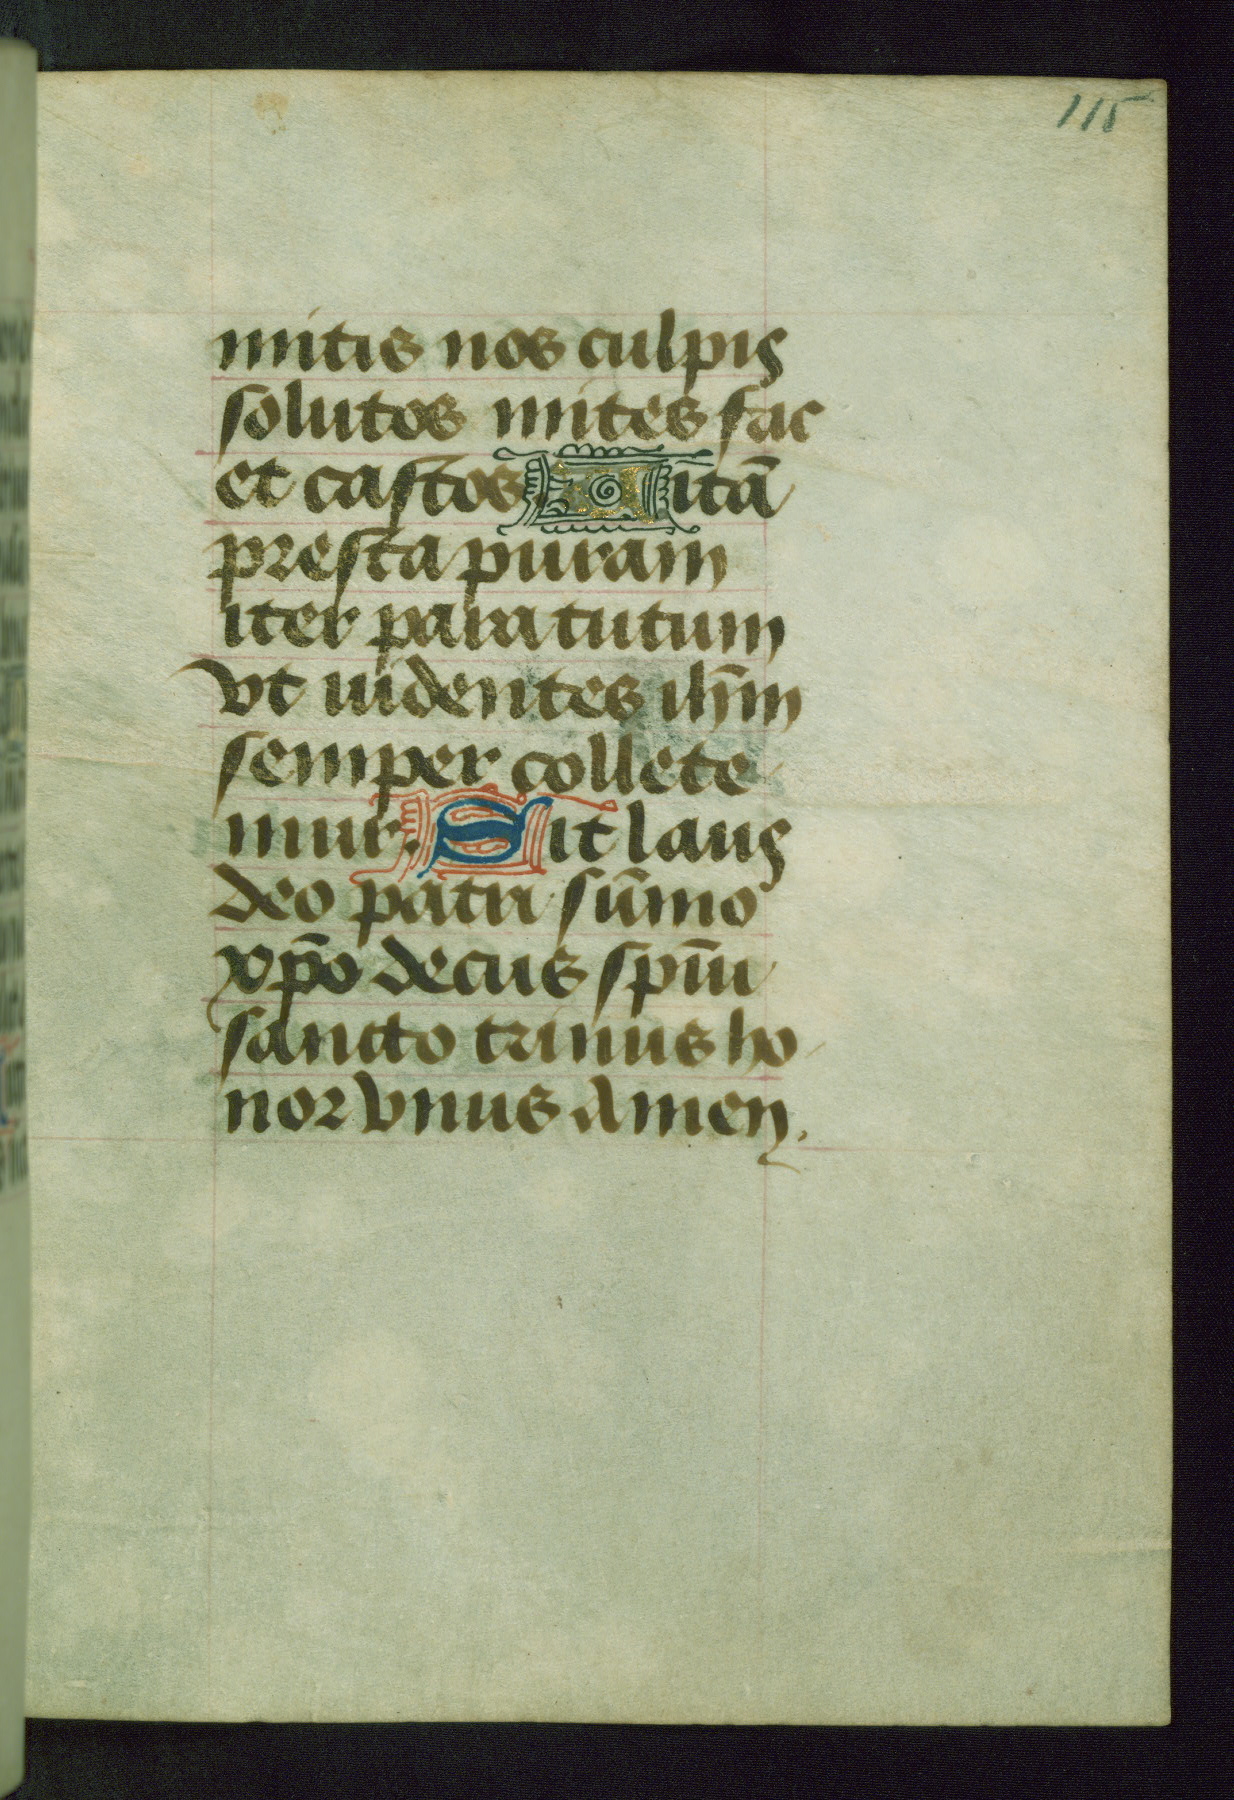 115
mitis nos culpis
solutos mites fac
et castos Vitā
presta puram
iter para tutum
vt uidentes ih̄m
semper collete
mur. Sit laus
deo patri sūmo
xp̄o decus sp̄iu
sancto trinus ho
nor vnus Amen.